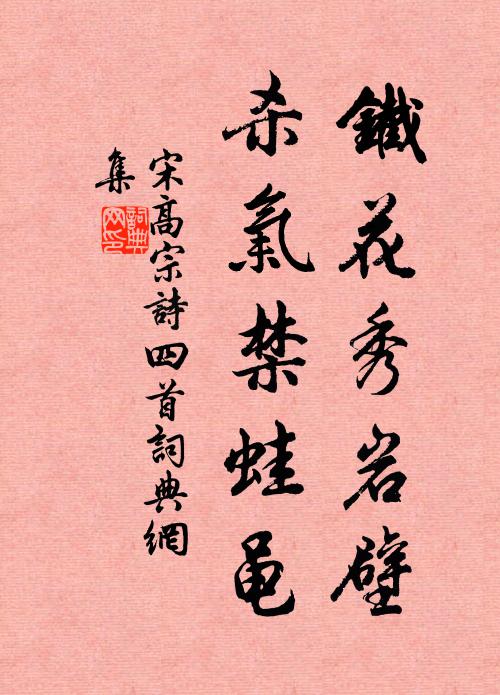 鐵花秀岩壁
杀氣禁蛙黽
宋高宗詩四首詞典網
集
詞典
网印